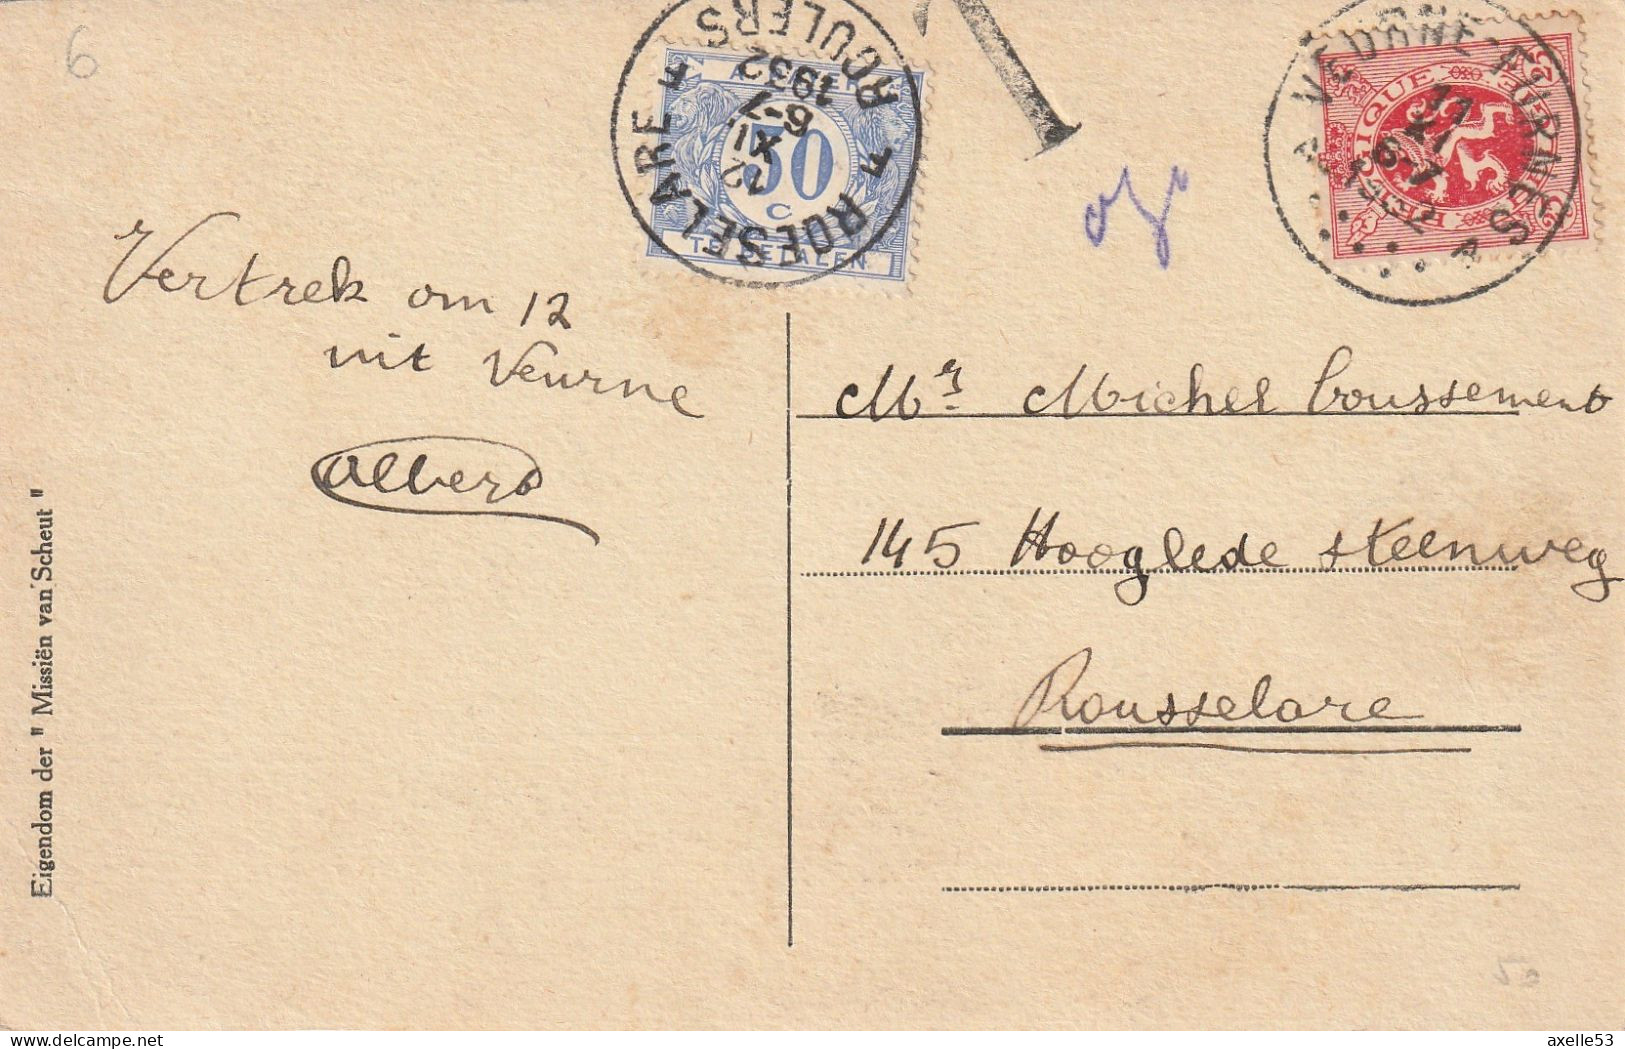 6
ROESELARE
ROULERS
22
XI
6-7
1932
50
C
TE BETALEN
T
VEURNE-FURNES
A A
XI
6-7
1932
Vertrek om 12
uit Veurne
Albert
Mr. Michel Coussement
145 Hooglede steenweg
Rousselare
Eigendom der "Missiën van Scheut"
axelle53